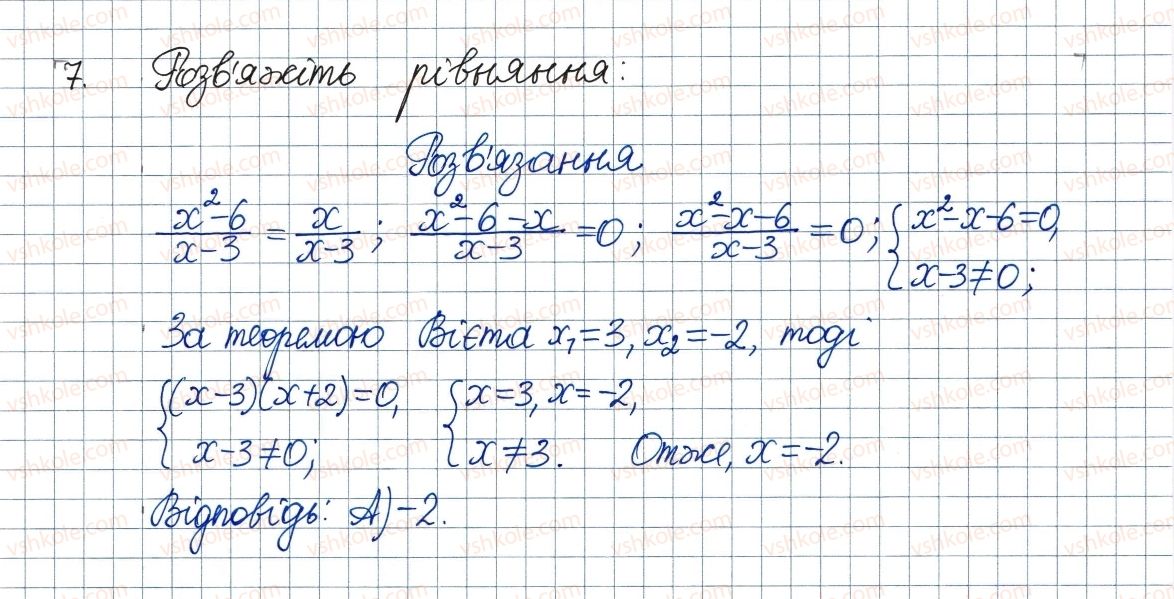 7. Розв'яжіть рівняння:
Розв'язання
x²-6/x-3 = x/x-3; x²-6-x/x-3 = 0; x²-x-6/x-3 = 0; { x²-x-6=0, x-3≠0;
За теоремою Вієта x₁=3, x₂=-2, тоді
{ (x-3)(x+2)=0, x-3≠0; { x=3, x=-2, x≠3. Отже, x=-2.
Відповідь: А) -2.